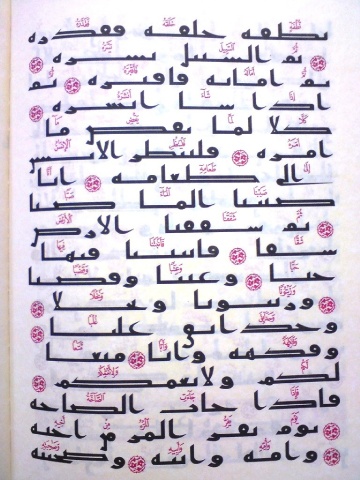 نطفة خلقه فقدره
ثم السبيل يسره
ثم أماته فأقبره ثم
إذا شاء أنشره
كلا لما يقض ما
أمره فلينظر الإنسن
إلى طعامه أنا
صببنا الماء صبا
ثم شققنا الأرض
شقا فأنبتنا فيها
حبا وعنبا وقضبا
وزيتونا ونخلا
وحدائق غلبا
وفكهة وأبا متعا
لكم ولأنعمكم
فإذا جاءت الصاخة
يوم يفر المرء من أخيه
وأمه وأبيه وصحبته